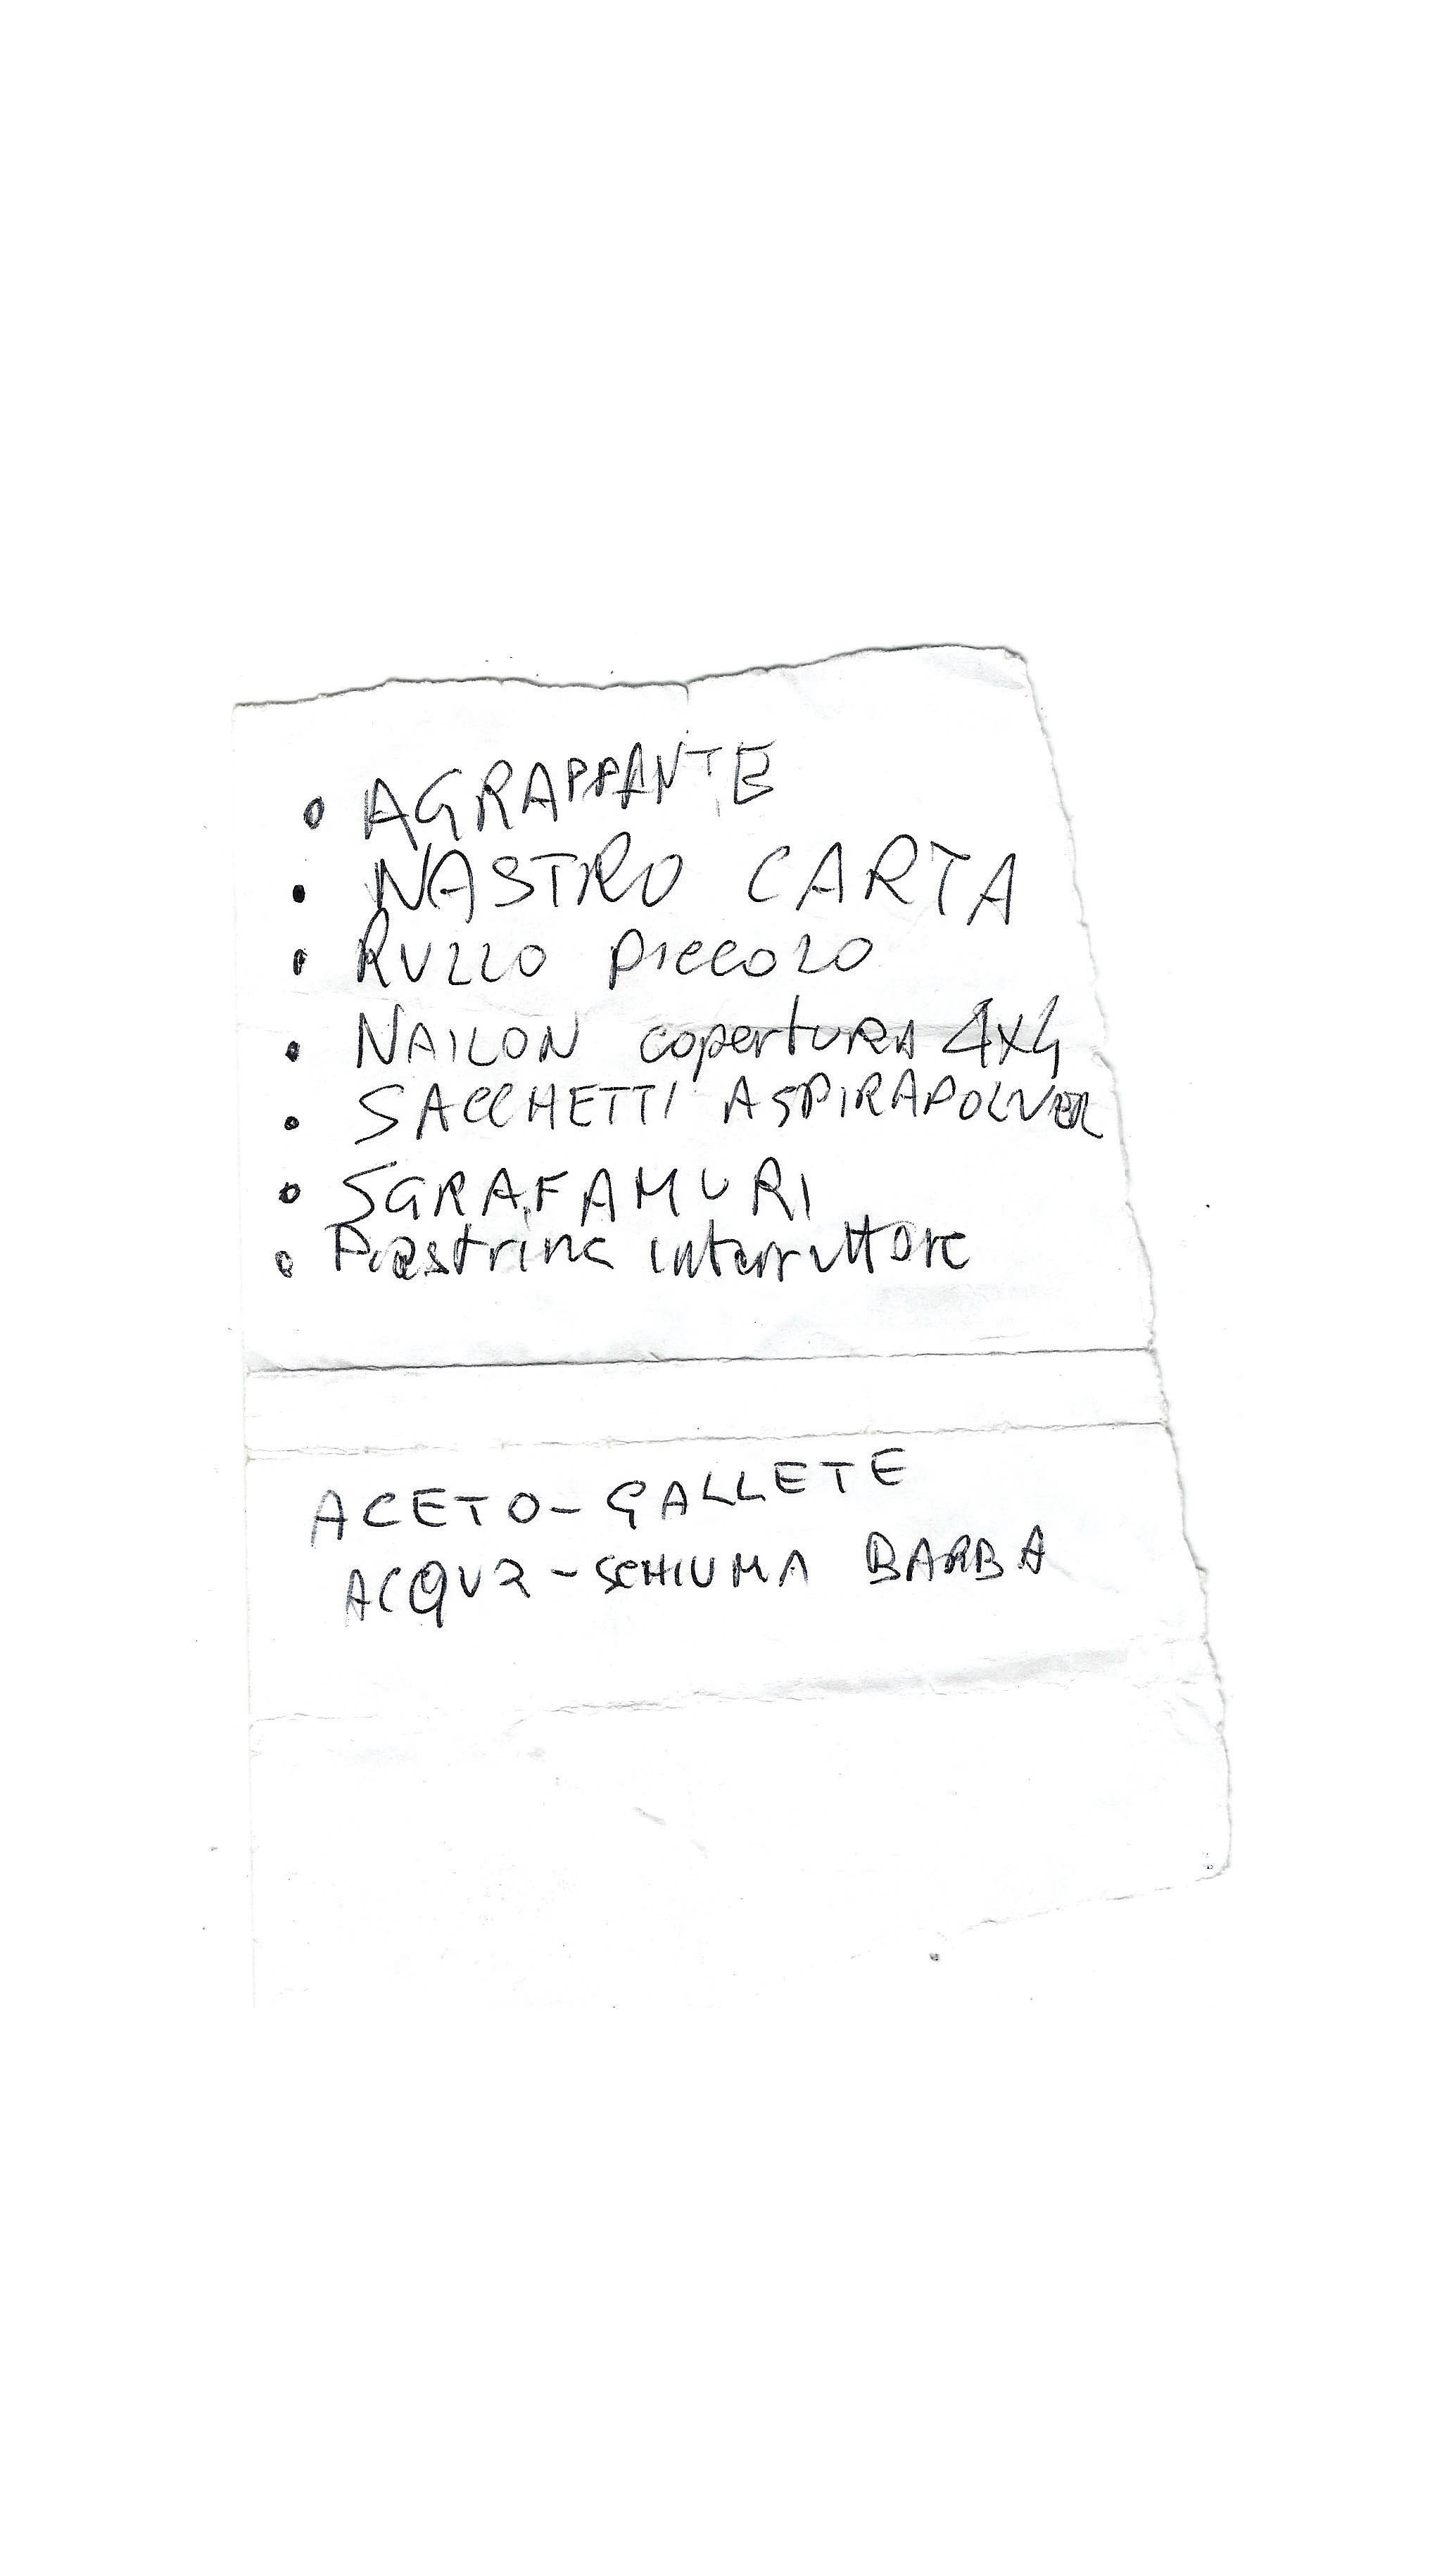 • AGRAPPANTE
• NASTRO CARTA
• RULLO PICCOLO
• NAILON copertura 4x4
• SACCHETTI ASPIRAPOLVER
• SGRAFAMURI
• Piastrina interruttore
ACETO - GALLETE
ACQUA - SCHIUMA BARBA